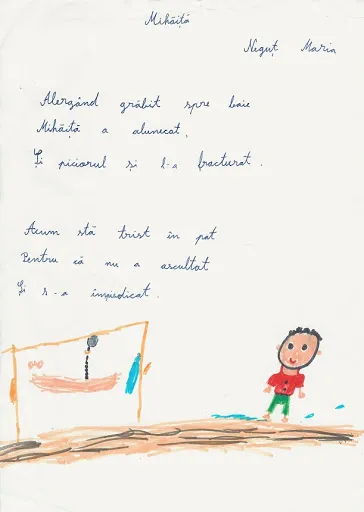 Mihăiță
Neguț Maria
Alergând grăbit spre baie
Mihăiță a alunecat,
Și piciorul și l-a fracturat.
Acum stă trist în pat
Pentru că nu a ascultat
Și s-a împiedicat.